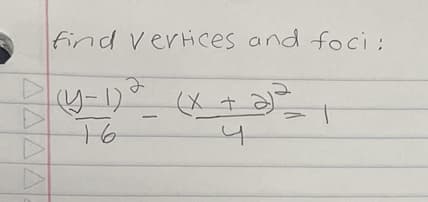 Find vertices and foci:
(y-1)²/16 - (x + 2)²/4 = 1